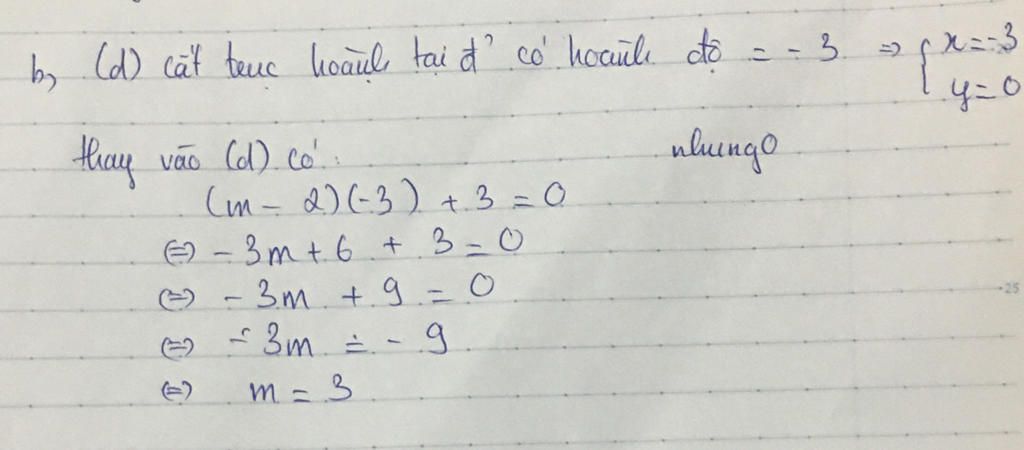 b, (d) cắt trục hoành tại đ' có hoành độ = - 3 => { x = -3
y = 0
thay vào (d) có: nhungo
(m - 2)(-3) + 3 = 0
<=> - 3m + 6 + 3 = 0
<=> - 3m + 9 = 0
25
<=> - 3m = - 9
<=> m = 3